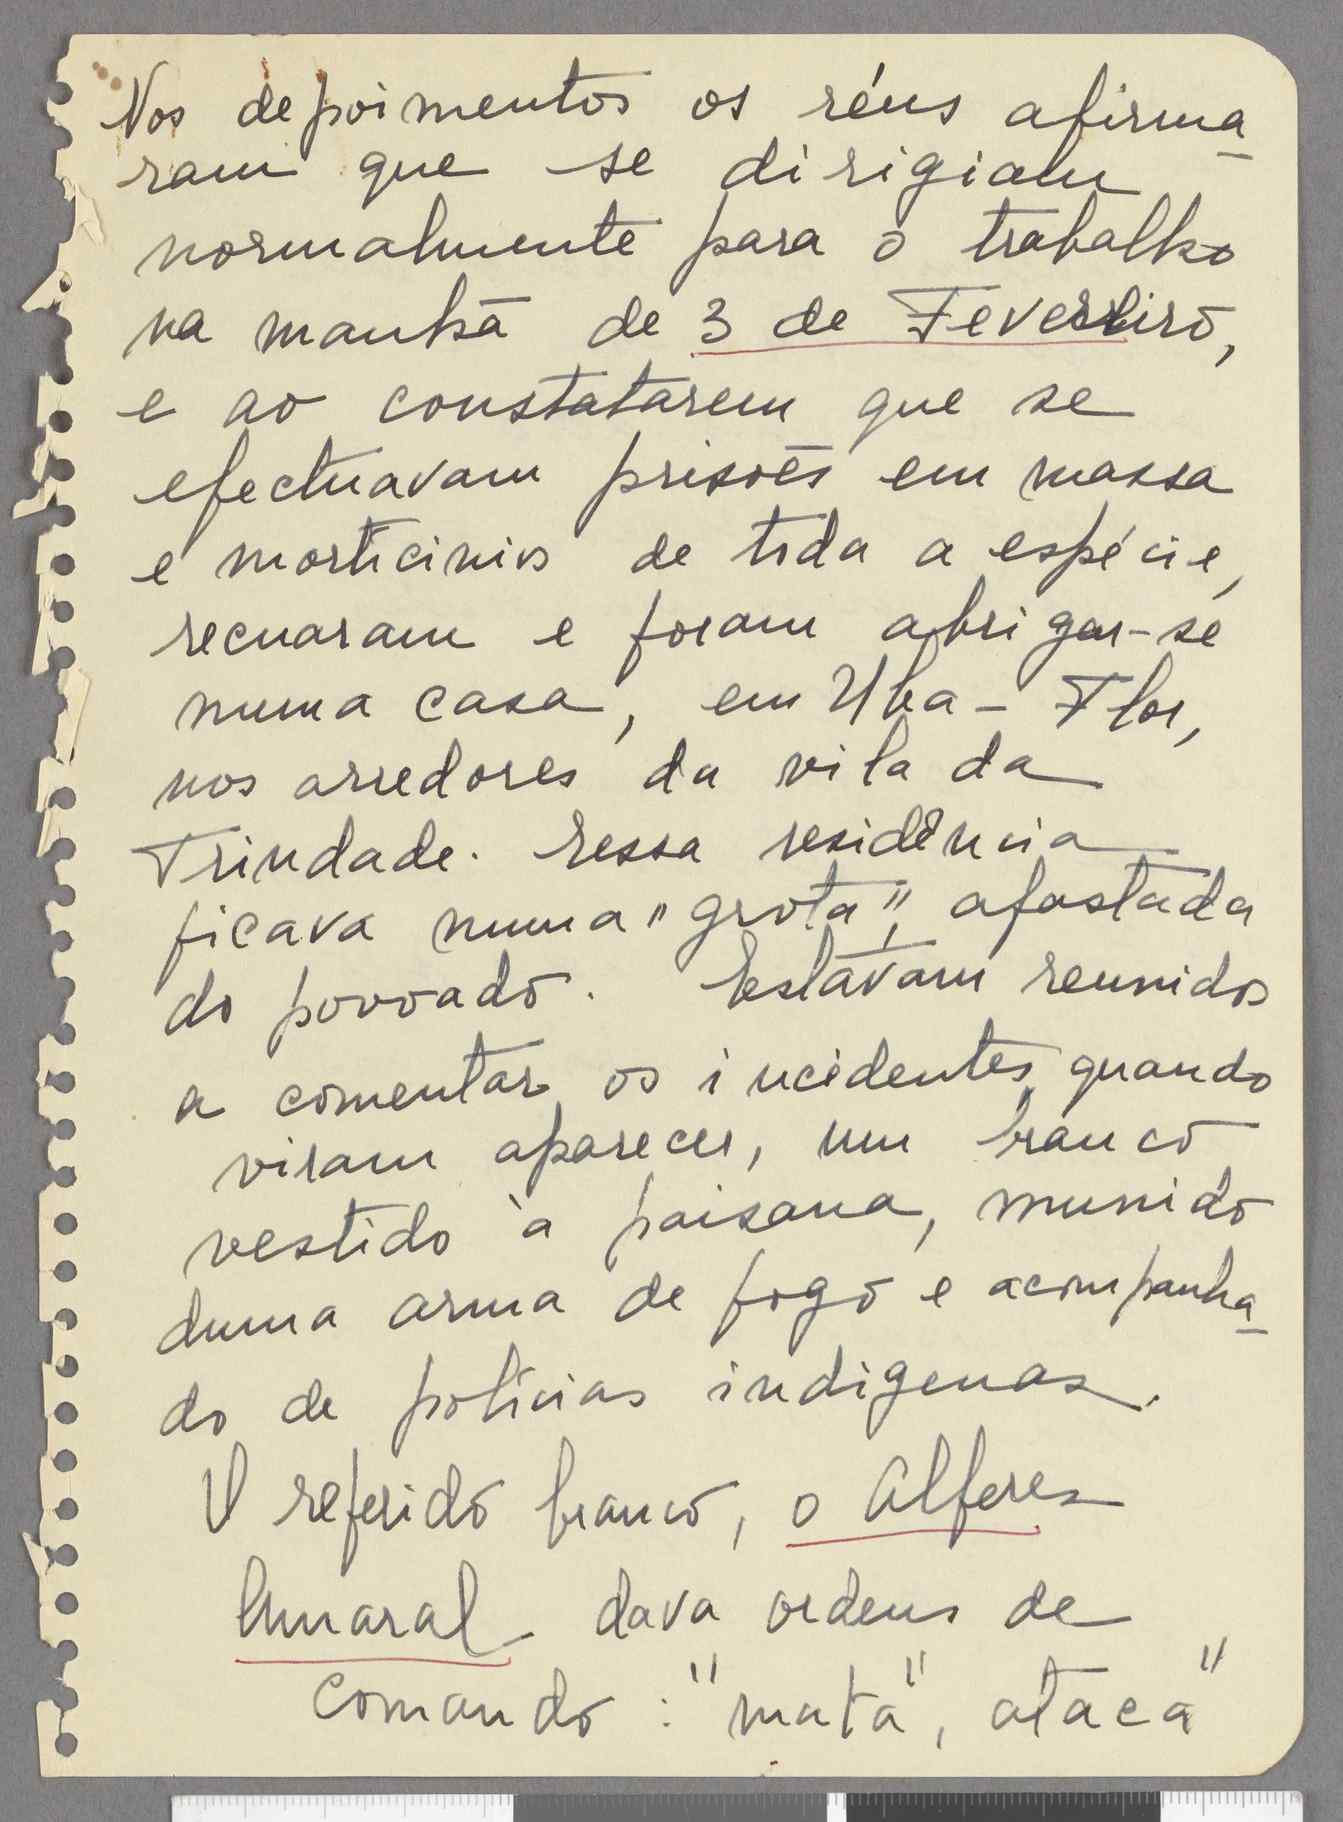 Nos depoimentos os réus afirma
ram que se dirigiam
normalmente para o trabalho
na manhã de 3 de Fevereiro,
e ao constatarem que se
efectuavam prisões em massa
e morticinios de toda a espécie,
recuaram e foram abrigar-se
numa casa, em Uba-Flor,
nos arredores da vila da
Trindade. Essa residência
ficava numa "grota", afastada
do povoado. Estavam reunidos
a comentar os incidentes, quando
viram aparecer, um branco
vestido à paisana, munido
duma arma de fogo e acompanha
do de polícias indígenas.
O referido branco, o Alferes
Amaral dava ordens de
comando: "mata", ataca"